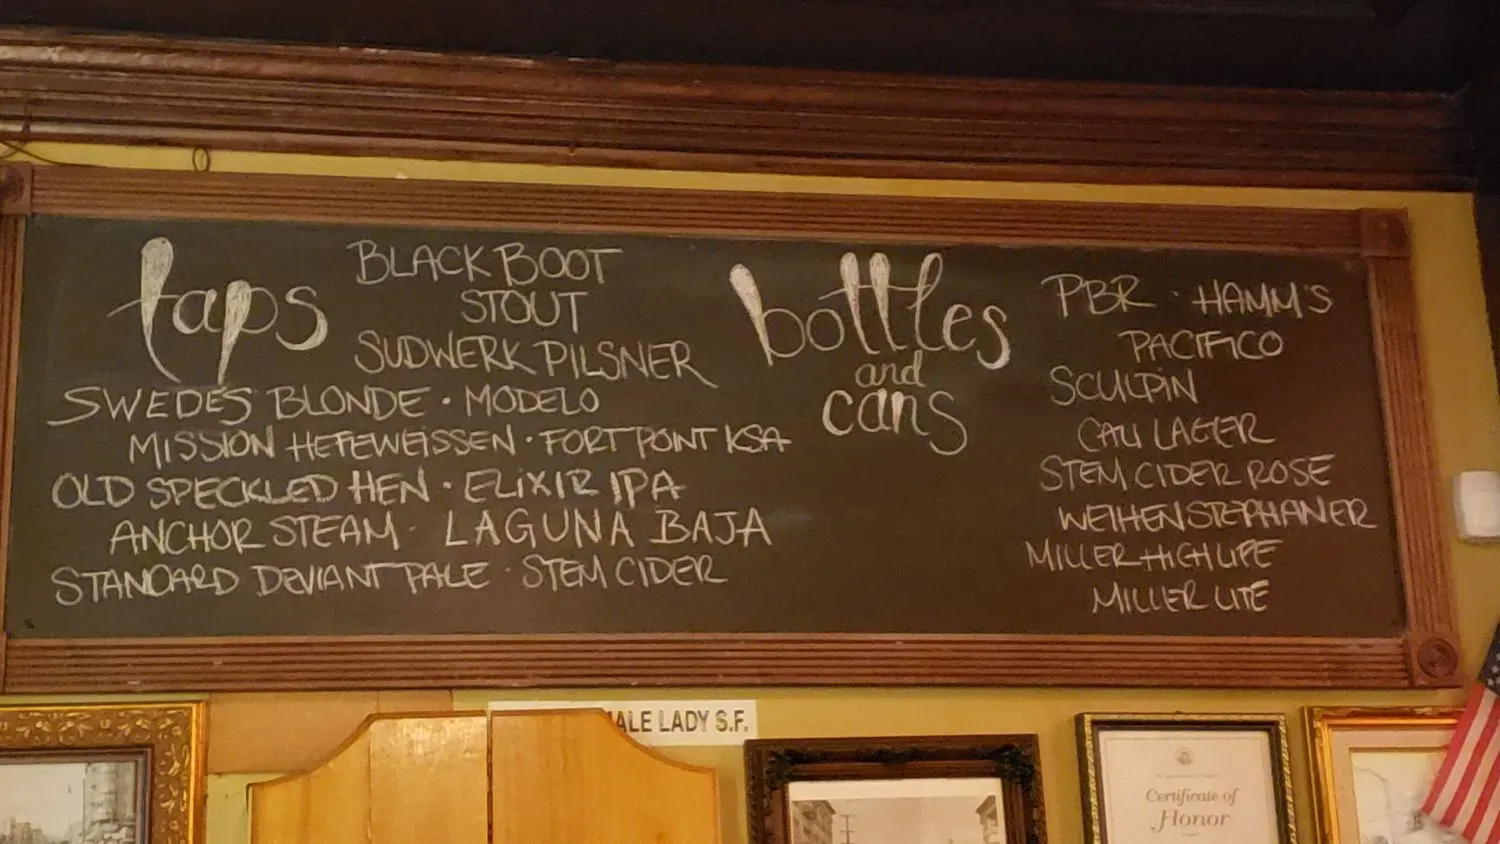 taps
BLACK BOOT
STOUT
SUDWERK PILSNER
SWEDES BLONDE · MODELO
MISSION HEFEWEISSEN · FORT POINT KSA
OLD SPECKLED HEN · ELIXIR IPA
ANCHOR STEAM · LAGUNA BAJA
STANDARD DEVIANT PALE · STEM CIDER
bottles
and
cans
PBR · HAMM'S
PACIFICO
SCULPIN
CALI LAGER
STEM CIDER ROSE
WEIHENSTEPHANER
MILLER HIGH LIFE
MILLER LITE
ALE LADY S.F.
Certificate of
Honor